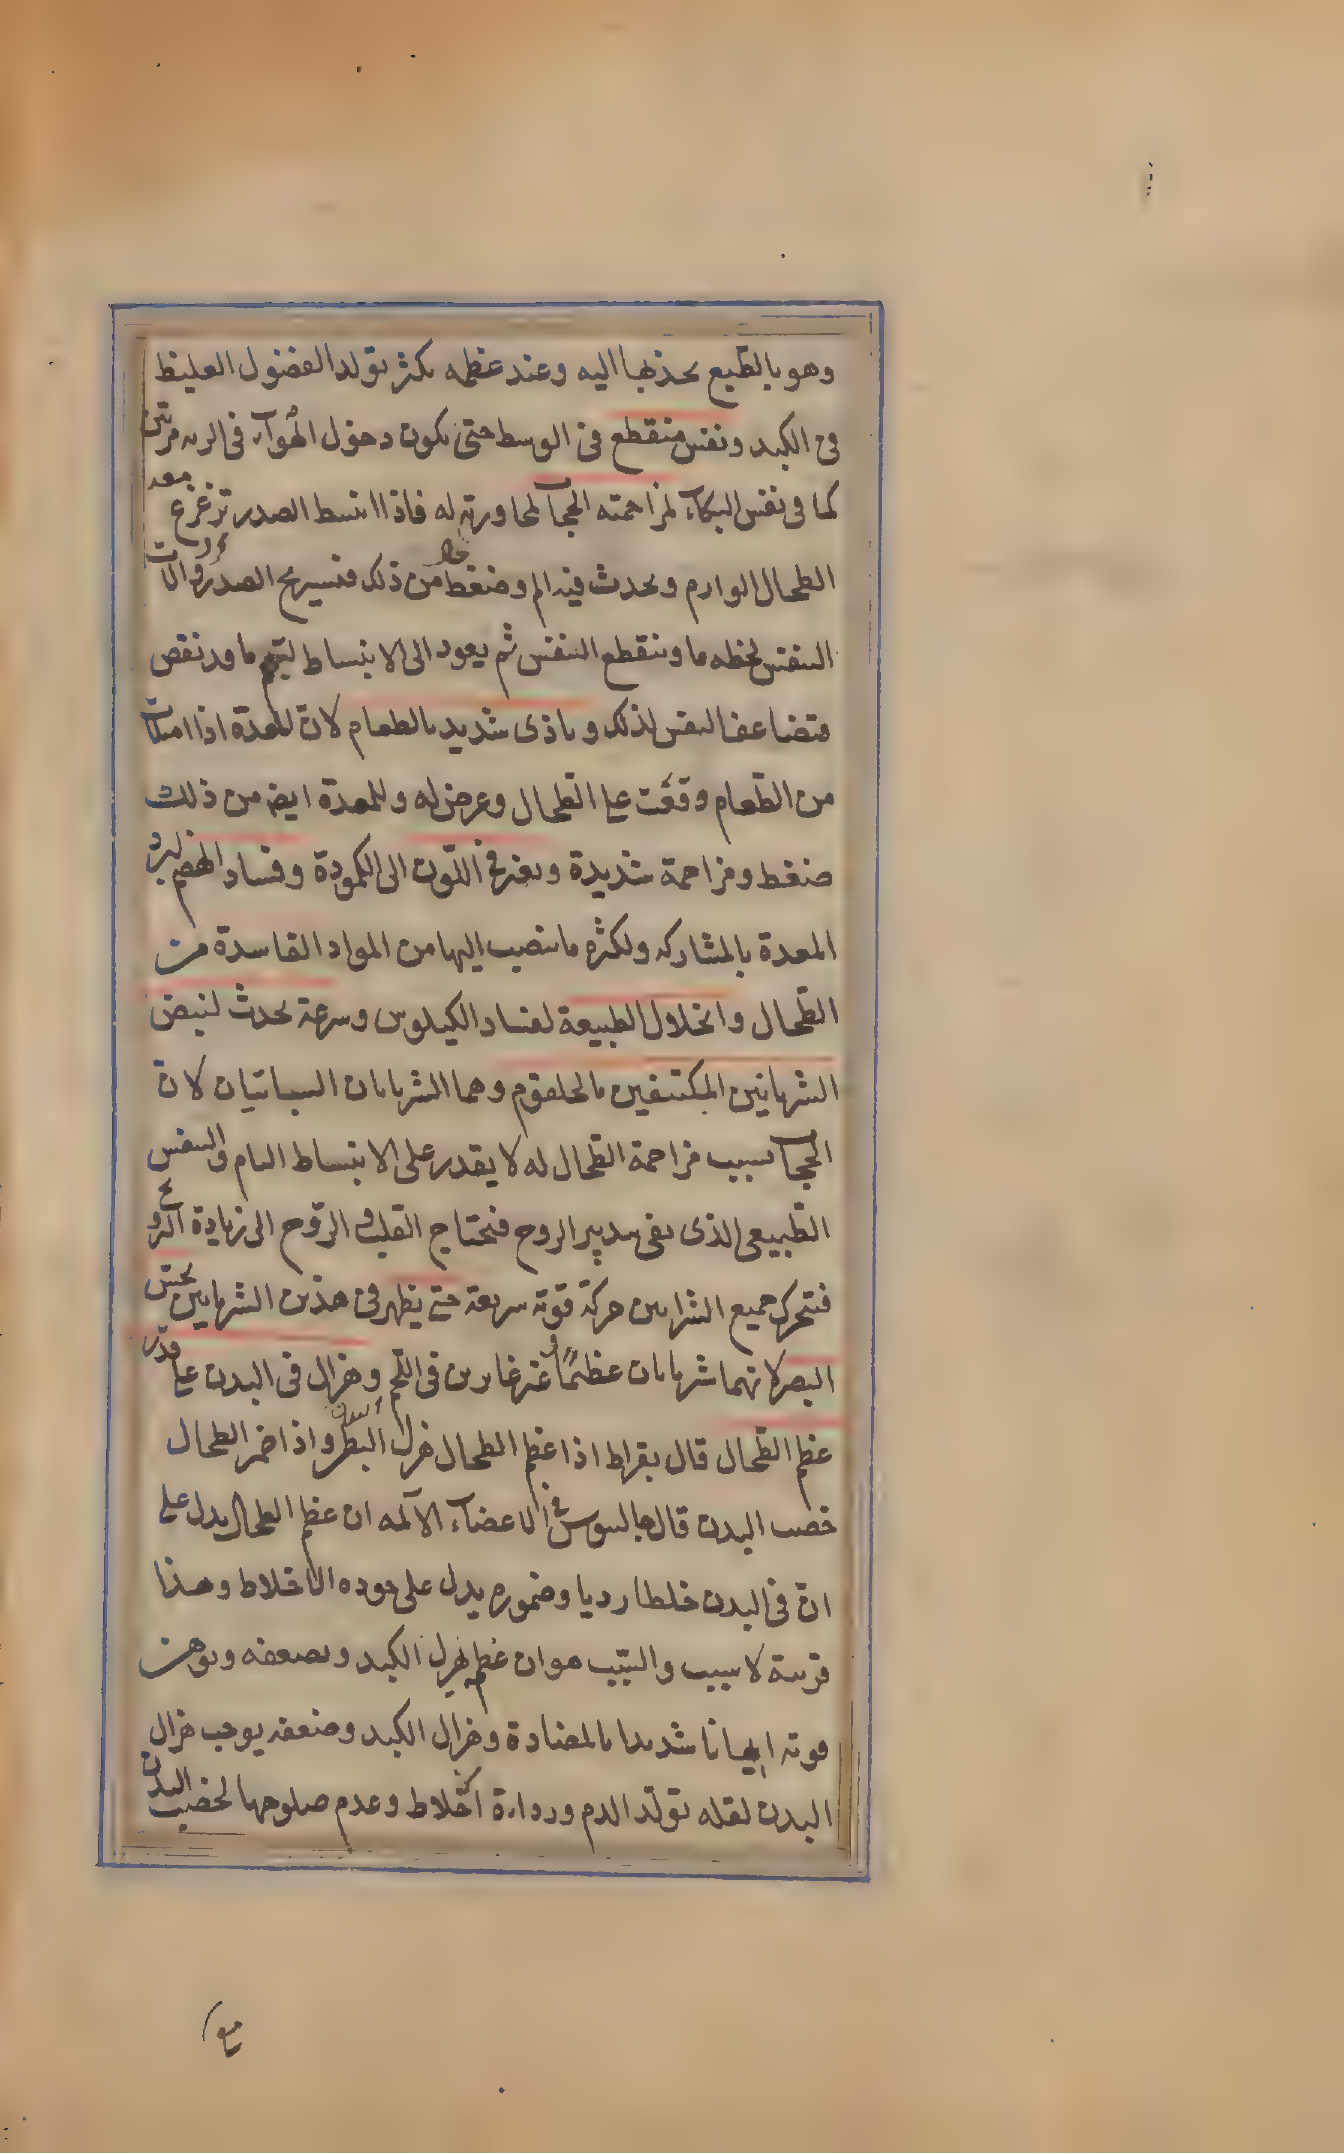 وهو بالطّبع يجذبها اليه وعند عظمه يكثر تولد الفضول الغليظ
فى الكبد ونفس منقطع فى الوسط حتى يكون دخول الهوآء فى الريه مرتين
كما فى نفس البكآء لمزاحمته الحجاب لمجاورته له فاذا انبسط الصدر تزعزع معه
الطحال الوارم ويحدث فيه الم وضغط من ذلك فيستريح الصدر والات
التنفس لحظه ما وينقطع التنفس ثم يعود الى الانبساط ليتم ما قد نقص
فتضاعف النفس لذلك وتاذى شديد بالطعام لان المعدة اذا امتلات
من الطّعام وقعت على الطحال وعرض له وللمعدة ايض من ذلك
ضغط ومزاحمة شديدة وتغير فى اللّون الى الكمودة وفساد الهضم لبرد
المعدة بالمشاركه ولكثره ما ينصب اليها من المواد الفاسدة من
الطّحال وانحلال الطبيعة لفساد الكيلوس وسرعة تحدث لنبض
الشريانين المكتنفين بالحلقوم وهما الشريانان السباتيان لان
الحجاب بسبب مزاحمة الطّحال له لا يقدر على الانبساط التام والتنفس
الطّبيعى الذى يفى بتدبير الروح فيحتاج القلب والرّوح الى زيادة التروح
فيتحرك جميع الشرايين حركة قوية سريعة حتى يظهر فى هذين الشريانين بحس
البصر لانهما شريانان عظيمان غير غايرين فى اللّحم وهزال فى البدن على قدر
عظم الطّحال قال بقراط اذا عظم الطحال هزل البدن واذا ضمر الطحال
خصب البدن قال جالينوس فى الاعضآء الآلمه ان عظم الطحال يدل على
انّ فى البدن خلطا رديا وضموره يدل على جوده الاخلاط وهذا
قرينة لا سبب والسّبب هو ان عظمه يهزل الكبد ويضعفه ويوهن
قوته ايهانا شديدا بالمضادة وهزال الكبد وضعفه يوجب هزال
البدن لقله تولّد الدم ورداءة الاخلاط وعدم صلوحها لخصب البدن